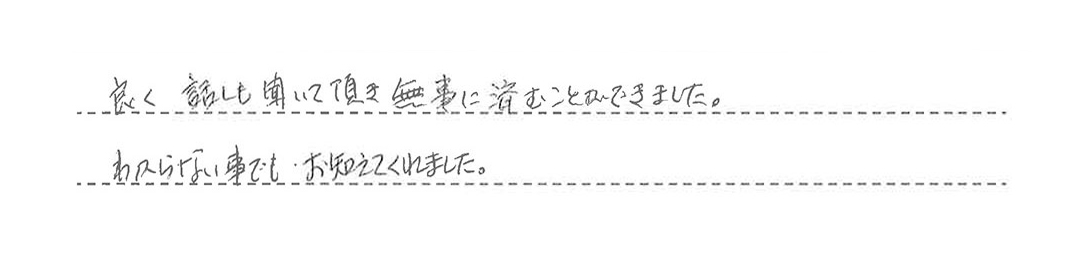 良く 話しも聞いて頂き無事に済むことができました。
わからない事でも・お知えてくれました。